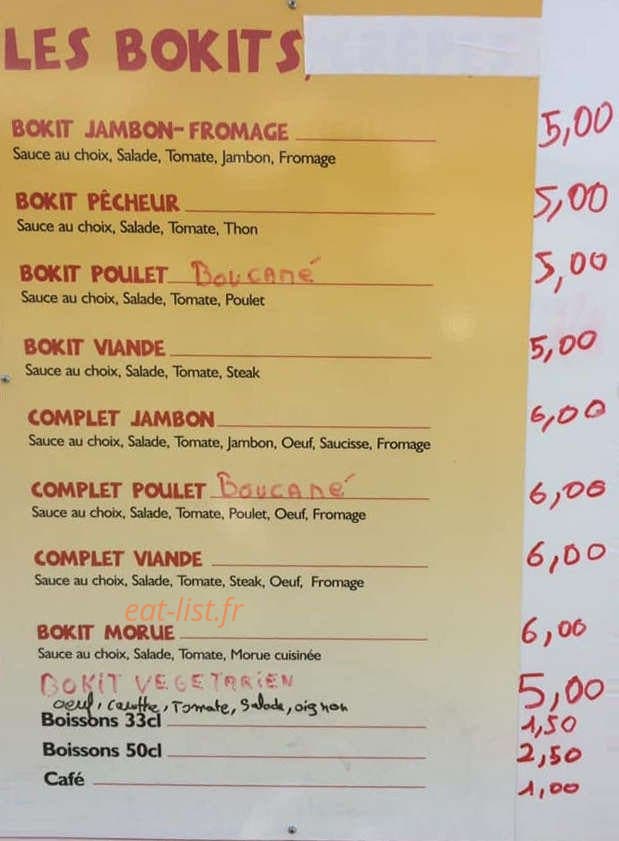 LES BOKITS,
BOKIT JAMBON-FROMAGE 5,00
Sauce au choix, Salade, Tomate, Jambon, Fromage
BOKIT PÊCHEUR 5,00
Sauce au choix, Salade, Tomate, Thon
BOKIT POULET Boucané 5,00
Sauce au choix, Salade, Tomate, Poulet
BOKIT VIANDE 5,00
Sauce au choix, Salade, Tomate, Steak
COMPLET JAMBON 6,00
Sauce au choix, Salade, Tomate, Jambon, Oeuf, Saucisse, Fromage
COMPLET POULET Boucané 6,00
Sauce au choix, Salade, Tomate, Poulet, Oeuf, Fromage
COMPLET VIANDE 6,00
Sauce au choix, Salade, Tomate, Steak, Oeuf, Fromage
eat-list.fr
BOKIT MORUE 6,00
Sauce au choix, Salade, Tomate, Morue cuisinée
BOKIT VEGETARIEN 5,00
oeuf, carotte, Tomate, Salade, oignon
Boissons 33cl 1,50
Boissons 50cl 2,50
Café 1,00